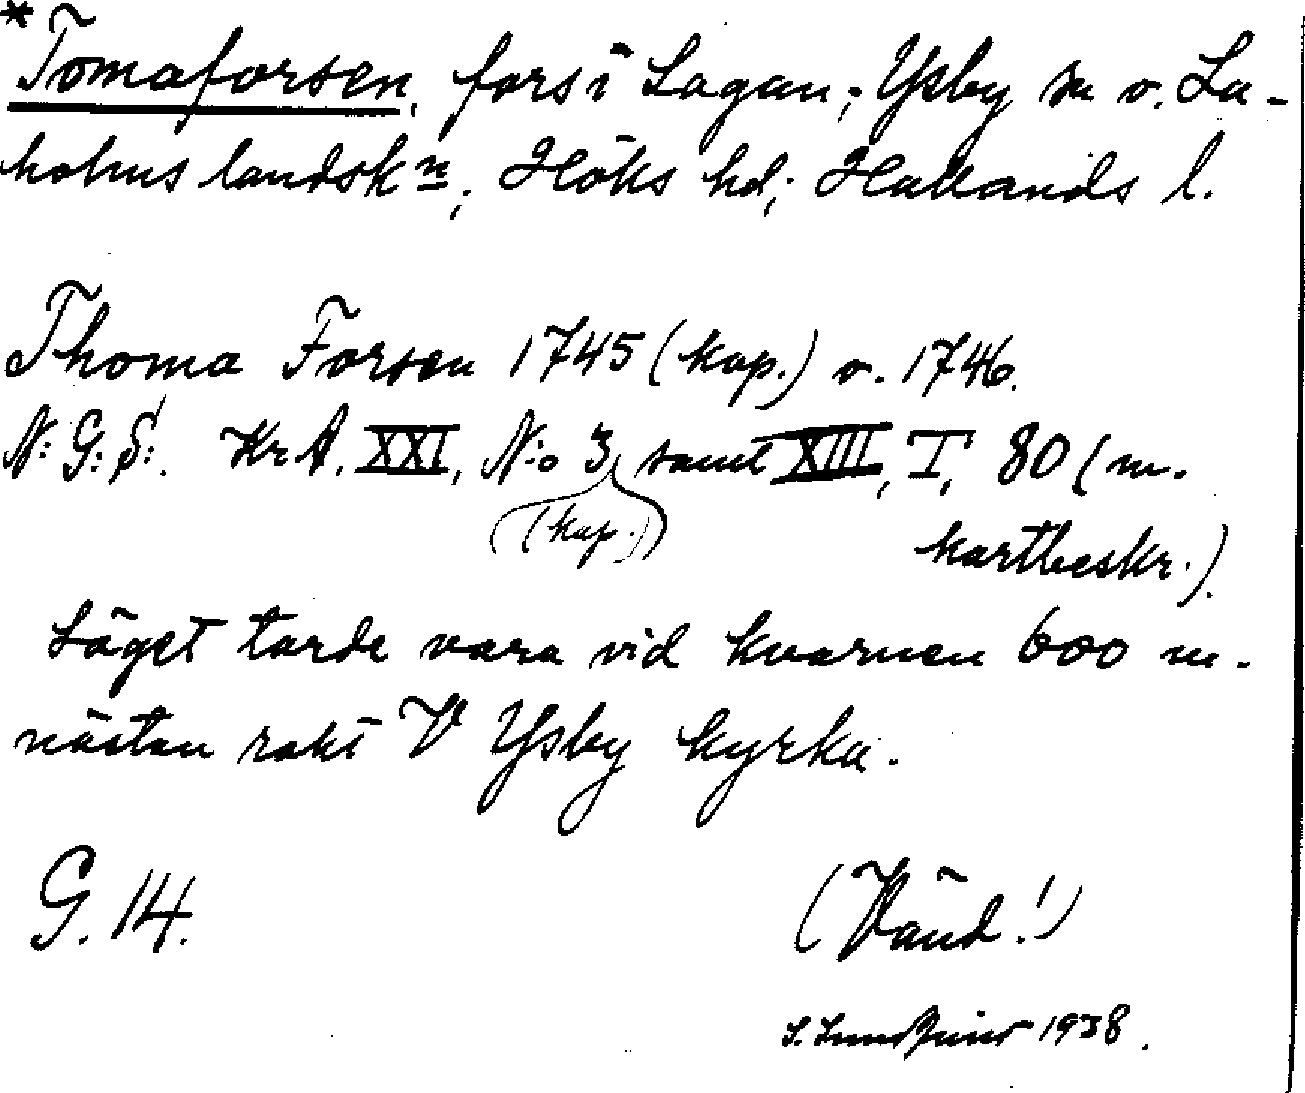 *Tomaforsen, fors i Lagan; Ysby sn o. La-
holms landskn, Höks hd; Hallands l.
Thoma Forsen 1745 (kop.) o. 1746.
N: G: S:. Kr. A. XXI, N:o 3, samt XIII, I, 80 (m.
(kop.)
kartbeskr.).
Läget torde vara vid kvarnen 600 m.
nästan rakt V Ysby kyrka.
G. 14.
(Vänd!)
1938.